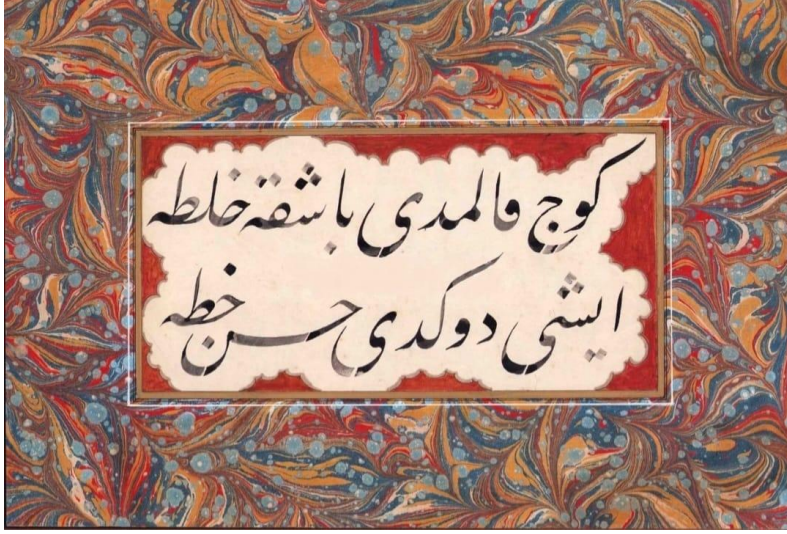 كوج قالمدی باشقه خلطه
ایشی دوكدی حسن خطه